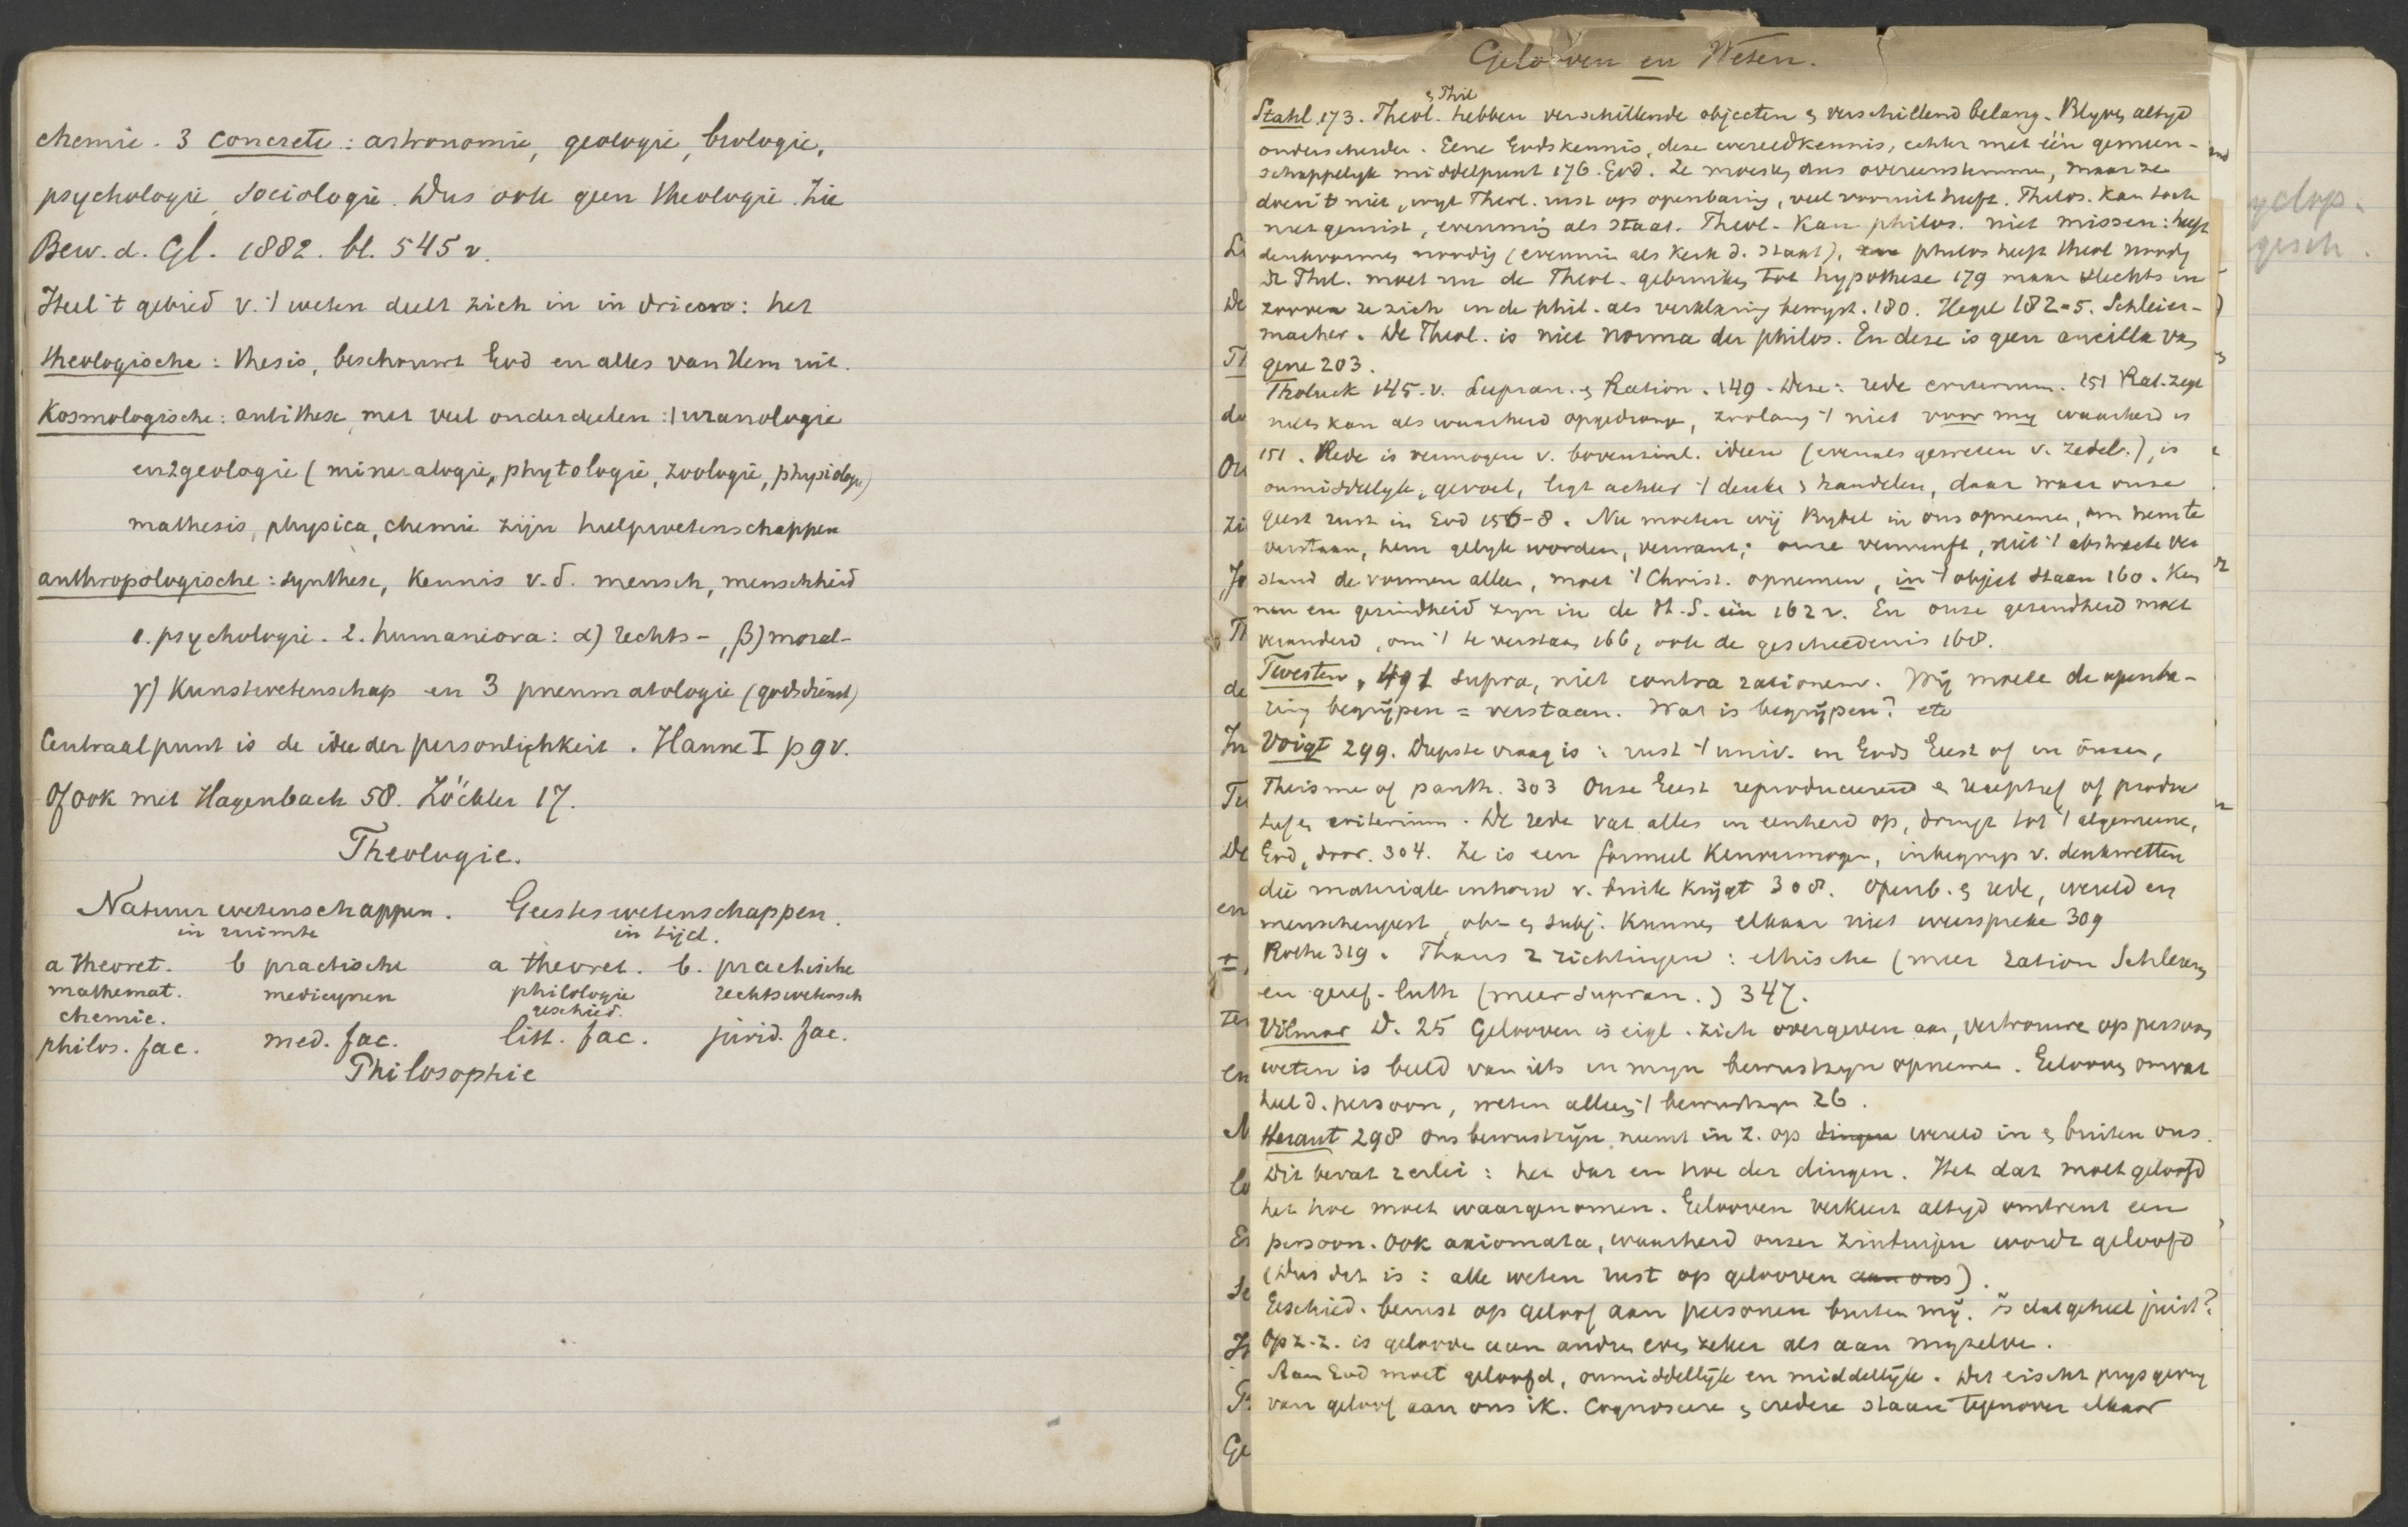 chemie. 3 concrete: astronomie, geologie, biologie,
psychologie, sociologie. Dus ook geen theologie. Zie
Bew. d. Gl. 1882. bl. 545 v.
Heel 't gebied v. 't weten deelt zich in in drieën: het
theologische: thesis, beschouwt God en alles van Hem uit.
Kosmologische: antithese, met veel onderdeelen: 1 uranologie
en 2 geologie (mineralogie, phytologie, zoologie, physiologie)
mathesis, physica, chemie zijn hulpwetenschappen
anthropologische: synthese, kennis v. d. mensch, menschheid
1. psychologie. 2. humaniora: α) rechts-, β) moral-
γ) Kunstwetenschap en 3 pneumatologie (godsdienst)
Centraalpunt is de idee der persönlichkeit. Hanne I p 9 v.
Of ook met Hagenbach 58. Zöckler 17.
Theologie.
Natuurwetenschappen. Geesteswetenschappen.
in ruimte in tijd.
a theoret. b practische a theoret. b. practische
mathemat. medicynen philologie rechtswetensch
chemie. geschied.
philos. fac. med. fac. litt. fac. jurid. fac.
Philosophie
yclop.
gesch.
Gelooven en Weten.
& Phil
Stahl 173. Theol. hebben verschillende objecten & verschillend belang. Blyven altyd
onderscheiden. Gene Godskennis, deze wereldkennis, echter met één gemeen-
schappelyk middelpunt 176. God. Ze moesten dus overeenstemmen, maar ze
doen 't niet, wyl Theol. rust op openbaring, veel vooruit heeft. Philos. kan toch
niet gemist, evenmin als staat. Theol. kan philos. niet missen: heeft
denkvormen noodig (evenmin als Kerk d. staat), philos heeft theol noodig
De Phil. moet nu de Theol. gebruiken tot hypothese 179 maar slechts in
zooverre ze zich in de phil. als verklaring bewyst. 180. Hegel 182-5. Schleier-
macher. De Theol. is niet norma der philos. En deze is geen ancilla van
gene 203.
Tholuck 145. v. Supran. & Ration. 149. Deze: rede criterium. 151 Rat. zegt
niets kan als waarheid opgedrongen, zoolang 't niet voor my waarheid is
151. Rede is vermogen v. bovenzinl. ideen (evenals geweten v. zedel.), is
onmiddellyk, gevoel, ligt achter 't denken & handelen, daar waar onze
geest rust in God 156-8. Nu moeten wij Bybel in ons opnemen, om hem te
verstaan, hem gelyk worden, verwant; onze vernunft, niet 't abstracte ver
stand de vormen alleen, moet 't Christ. opnemen, in 't object staan 160. Ken
nen en gezindheid zyn in de H. S. één 162 v. En onze gezindheid moet
veranderd, om 't te verstaan 166, ook de geschiedenis 168.
Twesten, 491 supra, niet contra rationem. Wij moeten de openba-
ring begrijpen = verstaan. Wat is begrijpen? etc
Voigt 299. Diepste vraag is: rust 't univ. in Gods Geest of in onzen,
Theisme of panth. 303 Onze Geest reproducerend & receptief of produc
tief en criterium. De rede vat alles in eenheid op, dringt tot 't algemeene,
God, door. 304. Ze is een formeel kenvermogen, inbegrip v. denkwetten
die materiale inhoud v. buite krijgt 308. Openb. & rede, wereld en
menschengeest, obj & subj. kunnen elkaar niet weerspreken 309
Rothe 319. Thans 2 richtingen: ethische (meer ration Schleierm
en geref-luth (meer supran.) 347.
Vilmar D. 25 Gelooven is eigl. zich overgeven aan, vertrouwen op persoon
weten is beeld van iets in myn bewustzyn opnemen. Gelooven omvat
heel d. persoon, weten alleen 't bewustzyn 26.
Heraut 298 Ons bewustzijn neemt in z. op dingen wereld in & buiten ons.
Dit bevat 2 erlei: het dat en hoe der dingen. Het dat moet geloofd
het hoe moet waargenomen. Gelooven verkeert altyd omtrent een
persoon. Ook axiomata, waarheid onzer zintuigen wordt geloofd
(Dus dit is: alle weten rust op gelooven aan ons).
Geschied. berust op geloof aan personen buiten mij. Is dat geheel juist?
Op z. z. is gelooven aan andren even zeker als aan myzelve.
Aan God moet geloofd, onmiddellijk en middellijk. Dit eischt prysgeving
van geloof aan ons ik. Cognoscere & credere staan tegenover elkaar